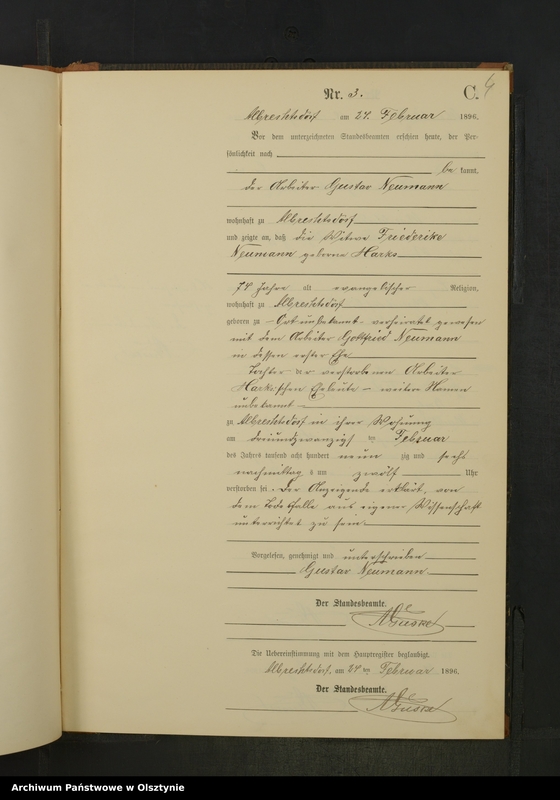 Nr. 3.
C. 4
Albrechtsdorf am 24. Februar 1896.
Vor dem unterzeichneten Standesbeamten erschien heute, der Per-
sönlichkeit nach
be kannt,
der Arbeiter Gustav Neumann
wohnhaft zu Albrechtsdorf
und zeigte an, daß die Witwe Friederike
Neumann geborene Harks
74 Jahre alt evangelischer Religion,
wohnhaft zu Albrechtsdorf
geboren zu Ort unbekannt verheiratet gewesen
mit dem Arbeiter Gottfried Neumann
in dessen erster Ehe
Tochter der verstorbenen Arbeiter
Harks'schen Eheleute – weitere Namen
unbekannt –
zu Albrechtsdorf in ihrer Wohnung
am dreiundzwanzigsten Februar
des Jahres tausend acht hundert neun zig und sechs
nachmittag s um zwölf Uhr
verstorben sei. Der Anzeigende erklärt, von
dem Todesfalle aus eigener Wissenschaft
unterrichtet zu sein.
Vorgelesen, genehmigt und unterschrieben
Gustav Neumann
Der Standesbeamte.
Guske
Die Uebereinstimmung mit dem Hauptregister beglaubigt.
Albrechtsdorf, am 24 ten Februar 1896.
Der Standesbeamte.
Guske
Archiwum Państwowe w Olsztynie